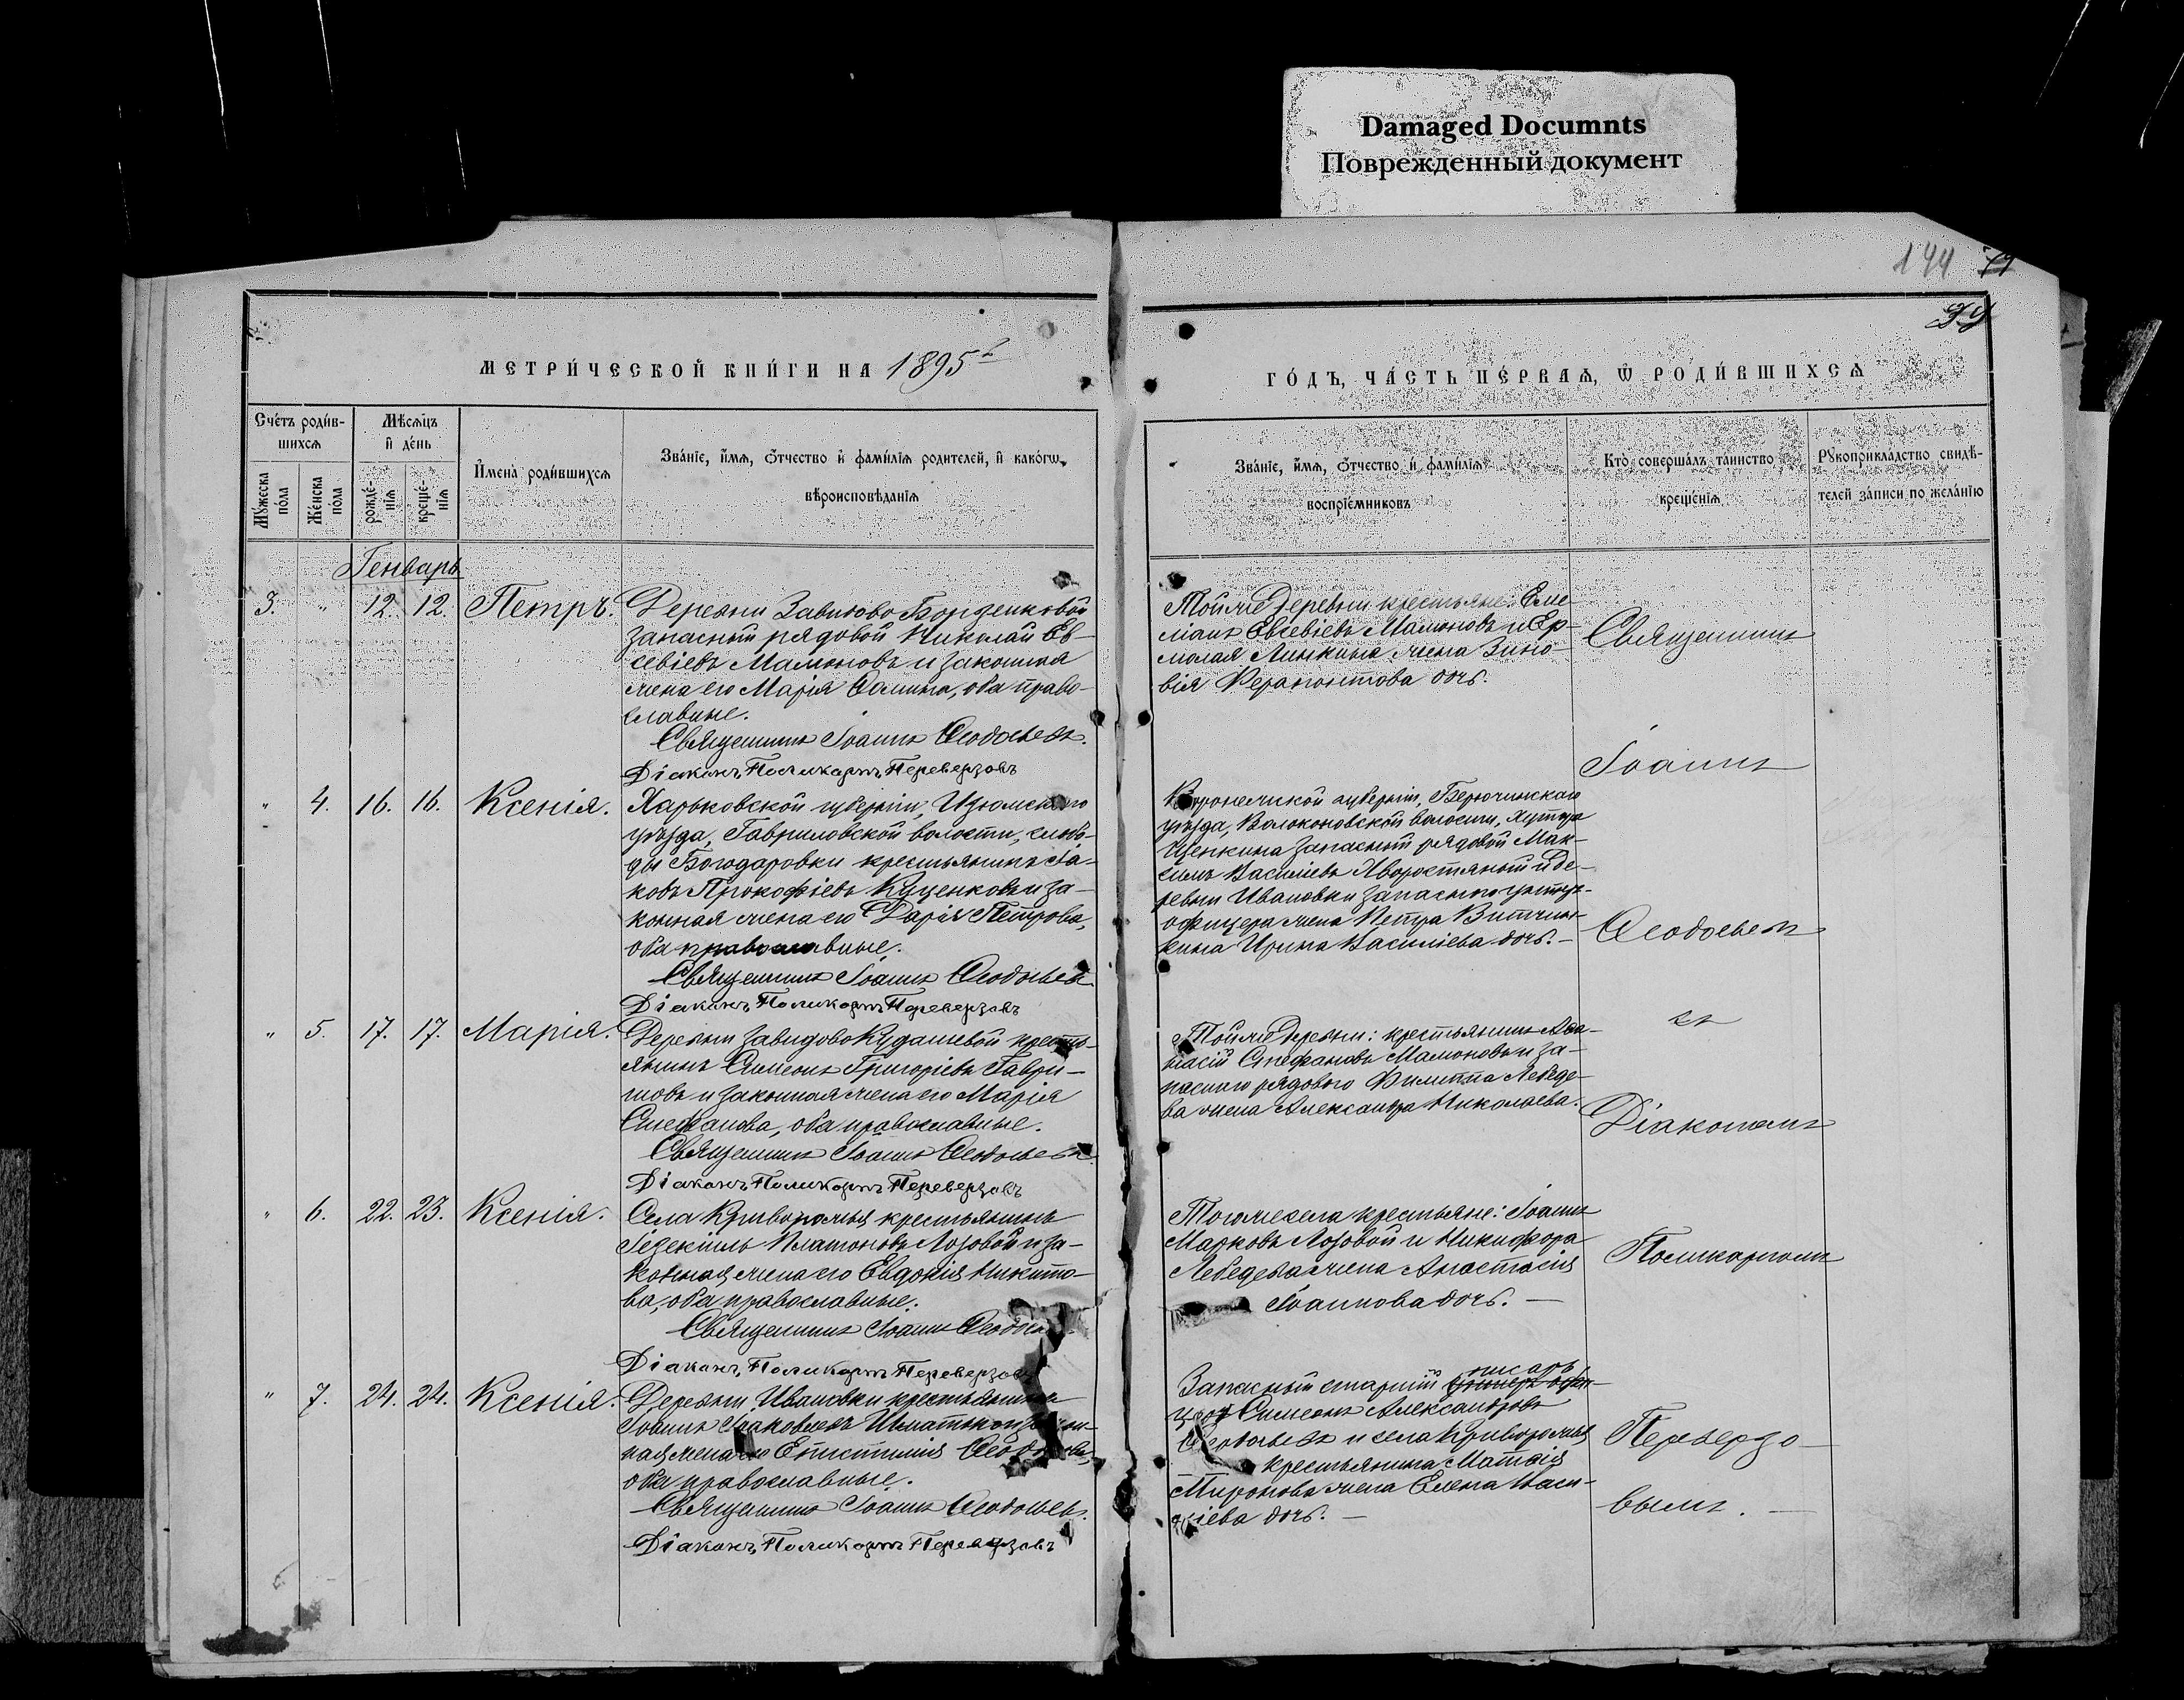 Damaged Documnts
Поврежденный документ
144
МЕТРИ́ЧЕСКОЙ КНИ́ГИ НА 1895й
ГО́ДЪ, ЧА́СТЬ ПЕ́РВАѦ, Ѽ РОДИ́ВШИХСѦ
Сче́тъ роди́в-
шихсѧ
Мꙋ́жеска по́ла
Же́нска по́ла
Мѣ́сѧцъ и҆ де́нь
рожде́-нїѧ
креще́-нїѧ
И҆мена̀ роди́вшихсѧ
Зва́нїе, и҆́мѧ, ѻ҆́тчество и҆ фами́лїѧ роди́телей, и҆ како́гѡ
вѣроисповѣ́данїѧ
Зва́нїе, и҆́мѧ, ѻ҆́тчество и҆ фами́лїѧ
воспрїе́мниковъ
Кто̀ соверша́лъ та́инство
креще́нїѧ
Рꙋкоприкла́дство свидѣ́-
телей за́писи по жела́нїю
Генварь
3. " 12. 12. Петръ.
Деревни Завидово Борзенковой
запасный рядовой Николай Ев-
севіевъ Мамоновъ и законная
жена его Марія Фомина, оба право-
славные.
Священникъ Іоаннъ Ѳеодосьевъ.
Діаконъ Поликарпъ Переверзовъ
Той же деревни крестьяне: Еме-
ліанъ Евсевіевъ Мамоновъ и Ер-
молая Линкина жена Зино-
вія Ферапонтова дочь.
" 4. 16. 16. Ксенія.
Харьковской губерніи, Изюмскаго
уѣзда, Гавриловской волости, слобо-
ды Богодаровки крестьянинъ Іа-
ковъ Прокофіевъ Куценковъ и за-
конная жена его Дарія Петрова,
оба православные.
Священникъ Іоаннъ Ѳеодосьевъ
Діаконъ Поликарпъ Переверзовъ
Воронежской губерніи, Бирюченскаго
уѣзда, Волоконовской волости, хутора
запасный рядовой Мак-
симъ Васильевъ и де-
ревни Ивановки запаснаго унтеръ-
офицера жена Петра
Ирина Васильева дочь. —
" 5. 17. 17. Марія.
Деревни Завидово Кудашевой кресть-
янинъ Симеонъ Григорьевъ Гаври-
ловъ и законная жена его Марія
Стефанова, оба православные.
Священникъ Іоаннъ Ѳеодосьевъ.
Діаконъ Поликарпъ Переверзовъ
Той же деревни: крестьянинъ Аѳа-
насій Стефановъ Мамоновъ и за-
паснаго рядового Филиппа Лебеде-
ва жена Александра Николаева.
" 6. 22. 23. Ксенія.
Села Криворожья крестьянинъ
Іезекіиль Платоновъ Лозовой и за-
конная жена его Евдокія Никито-
ва, оба православные.
Священникъ Іоаннъ Ѳеодось
Діаконъ Поликарпъ Переверзовъ
Того же села крестьяне: Іоаннъ
Марковъ Лозовой и Никифора
Лебедева жена Анастасія
Іоаннова дочь. —
" 7. 24. 24. Ксенія.
Деревни Ивановки крестьянинъ
Іоаннъ Іаковлевъ Игнатьковъ и закон-
ная жена его Епистимія Ѳеодорова,
оба православные.
Священникъ Іоаннъ Ѳеодосьевъ.
Діаконъ Поликарпъ Переверзовъ
писарь
Запасный старшій унтеръ-офи-
церъ Симеонъ Александровъ
Ѳеодосьевъ и села Криворожья
крестьянина Матѳія
Миронова жена Елена Васи-
ліева дочь. —
Священникъ
Іоаннъ
Ѳеодосьевъ
съ
Діакономъ
Поликарпомъ
Переверзо-
вымъ. —